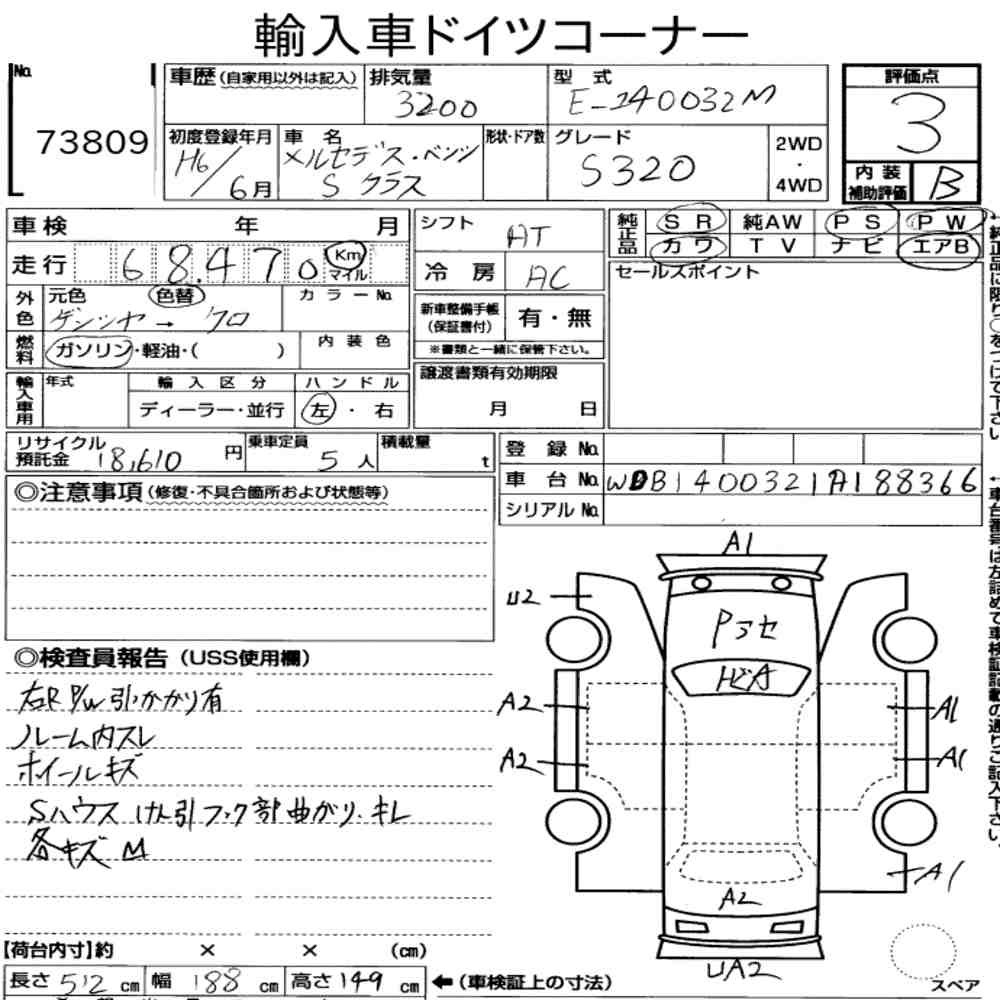 輸入車ドイツコーナー
No.
73809
車歴 (自家用以外は記入)
排気量
3200
型式
E-140032M
評価点
3
内装補助評価
B
初度登録年月
H6/6月
車名
メルセデス・ベンツ
Sクラス
形状・ドア数
グレード
S320
2WD
・
4WD
車検 年 月
走行 68.470 Km マイル
外色
元色
色替
カラーNo.
→ クロ
燃料
ガソリン・軽油・( )
内装色
輸入車用
年式
輸入区分
ディーラー・並行
ハンドル
左・右
シフト
AT
冷房
AC
新車整備手帳
(保証書付)
有・無
※書類と一緒に保管下さい。
譲渡書類有効期限
月 日
純正品
SR 純AW PS PW
カワ TV ナビ エアB
セールスポイント
←純正品に限り○をつけて下さい
リサイクル預託金 18,610 円
乗車定員 5人
積載量 t
登録No.
車台No. WDB1400321A188366
シリアルNo.
←車台番号は左詰めで車検証記載の通りご記入下さい。
◎注意事項 (修復・不具合箇所および状態等)
◎検査員報告 (USS使用欄)
右R P/W 引かかり有
ルーム内スレ
ホイールキズ
Sハウス けん引フック部曲がり、キレ
各キズ M
A1
U2
Pラセ
A2
A1
A2
A1
A1
A2
UA2
スペア
【荷台内寸】約 × × (cm)
長さ 512 cm 幅 188 cm 高さ 149 cm
←(車検証上の寸法)